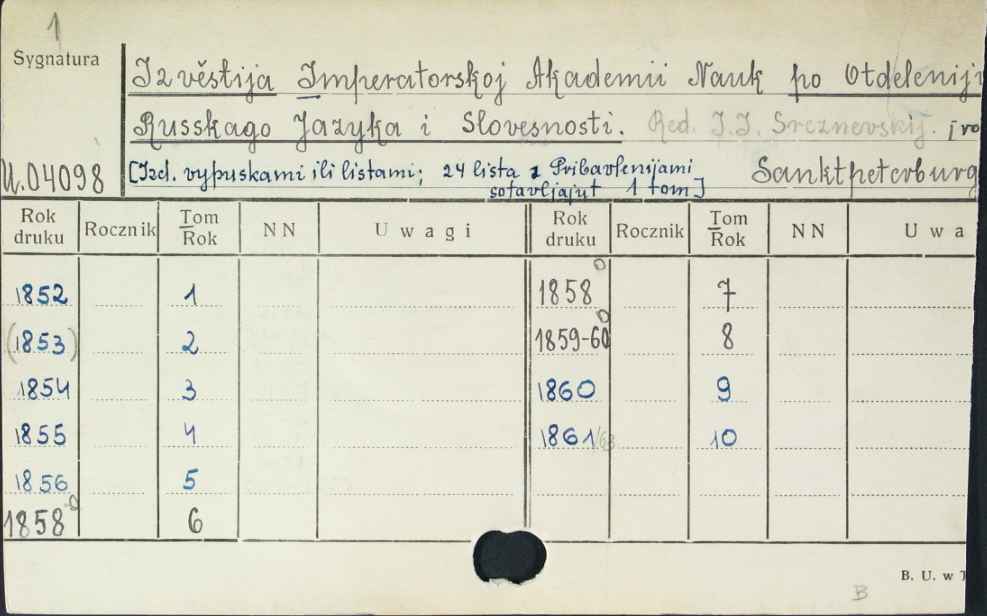 1
Sygnatura
Izvěstija Imperatorskoj Akademii Nauk po Otdelenij
Russkago Jazyka i Slovesnosti. Red. I. I. Sreznevskij.
U.04098
[Izd. vypuskami ili listami; 24 lista z Pribavlenijami Sanktpeterburg
sotavljajut 1 tom]
Rok druku Rocznik Tom Rok NN Uwagi Rok druku Rocznik Tom Rok NN Uwa
1852 1 1858 7
(1853) 2 1859-60 8
1854 3 1860 9
1855 4 1861/63 10
1856 5
1858 6
B. U. w T
B